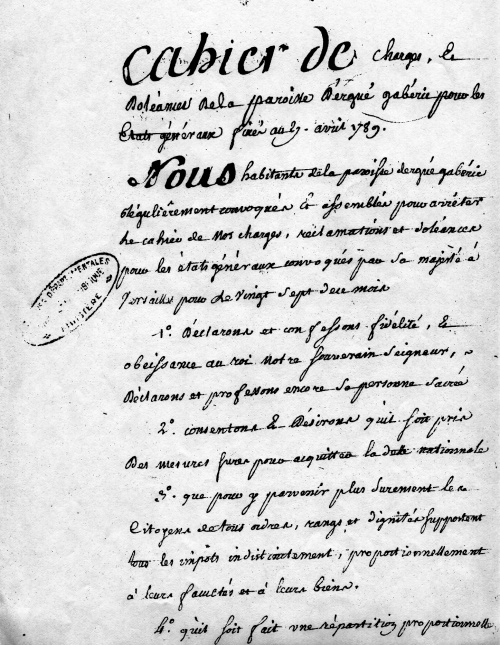 Cahier de charges, &
Doléances de la paroisse D'ergué gabéric pour les
Etats généraux fixé au 27. avril 1789.
Nous habitants de la paroisse dergué gabéric
régulièrement convoqués et assemblés pour arrêter
Le cahier de nos charges, réclamations et doléances
pour les états généraux convoqués par sa majesté à
Versailles pour Le vingt sept de ce mois
1º. Déclarons et confessons fidélité, &
obeissance au roi notre souverain seigneur,
Déclarons et professons encore sa personne sacré
2º. consentons & Désirons qu'il soit pris
Des mesures sures pour acquitter la dette nationnale
3º. que pour y parvenir plus surement les
Citoyens de tous ordres, rangs et dignités supportent
tous les impôts indistinctement, proportionnellement
à leurs facultés et à leurs biens.
4º. qu'il soit fait une répartition proportionnelle
FINISTÈRE